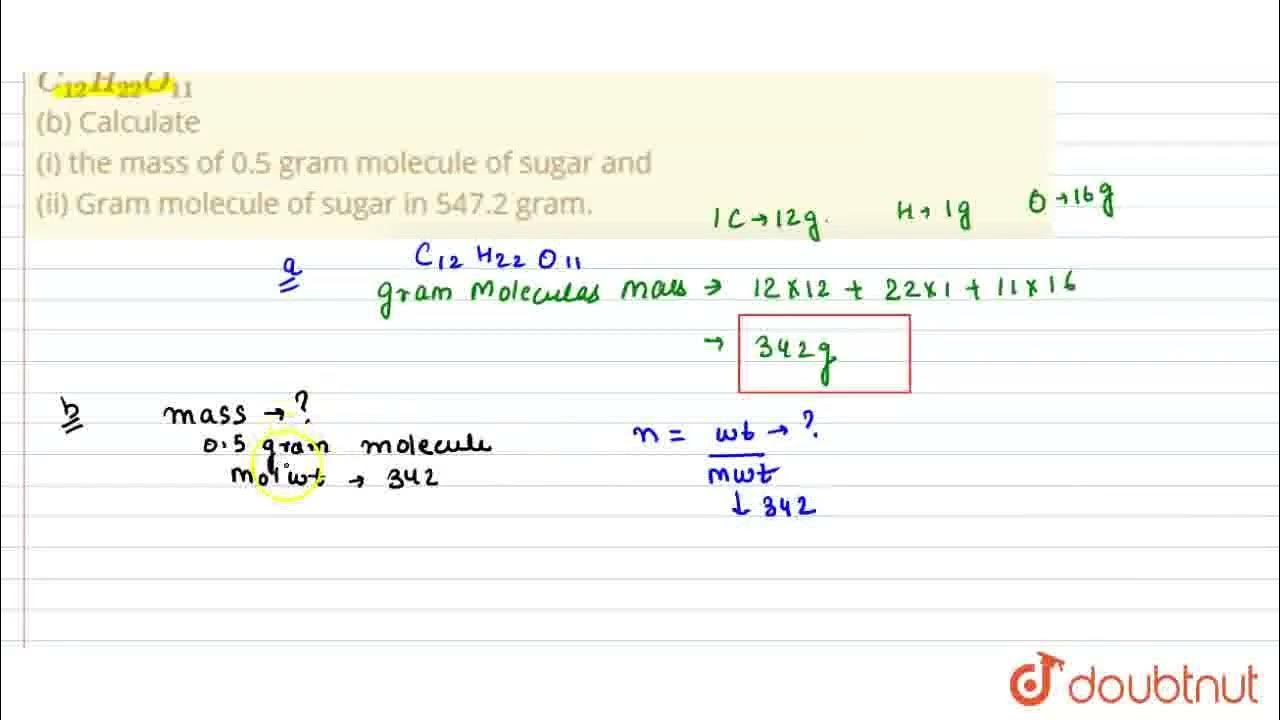 C₁₂H₂₂O₁₁
(b) Calculate
(i) the mass of 0.5 gram molecule of sugar and
(ii) Gram molecule of sugar in 547.2 gram.
1C → 12g. H → 1g O → 16g
a C₁₂ H₂₂ O₁₁
gram Moleculas mass → 12×12 + 22×1 + 11×16
→ 342g
b mass → ?
0.5 gram molecule
Mol wt → 342
n = wt → ?
mwt
↓ 342
doubtnut